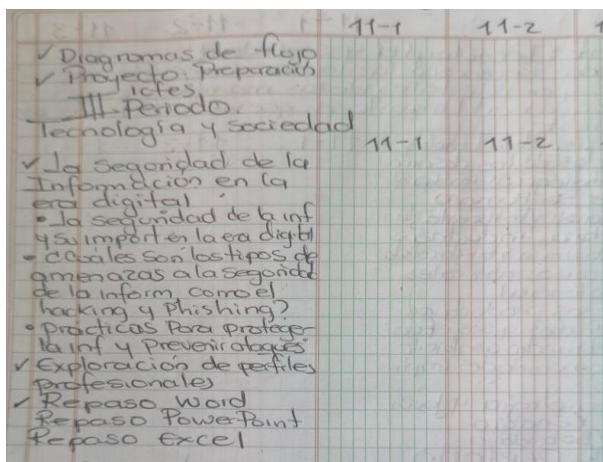 11-1 11-2 1
✓ Diagramas de flujo
✓ Proyecto: Preparación
Icfes
III Periodo.
Tecnología y sociedad
11-1 11-2
✓ La segoridad de la
Información en la
era digital
• La seguridad de la inf
y su import en la era digital
• ¿Cuáles son los tipos de
amenazas a la segoridad
de la inform como el
hacking y Phishing?
• Prácticas Para proteger
la inf y Prevenir ataques
✓ Exploración de perfiles
profesionales
✓ Repaso Word
Repaso PowerPoint
Repaso Excel